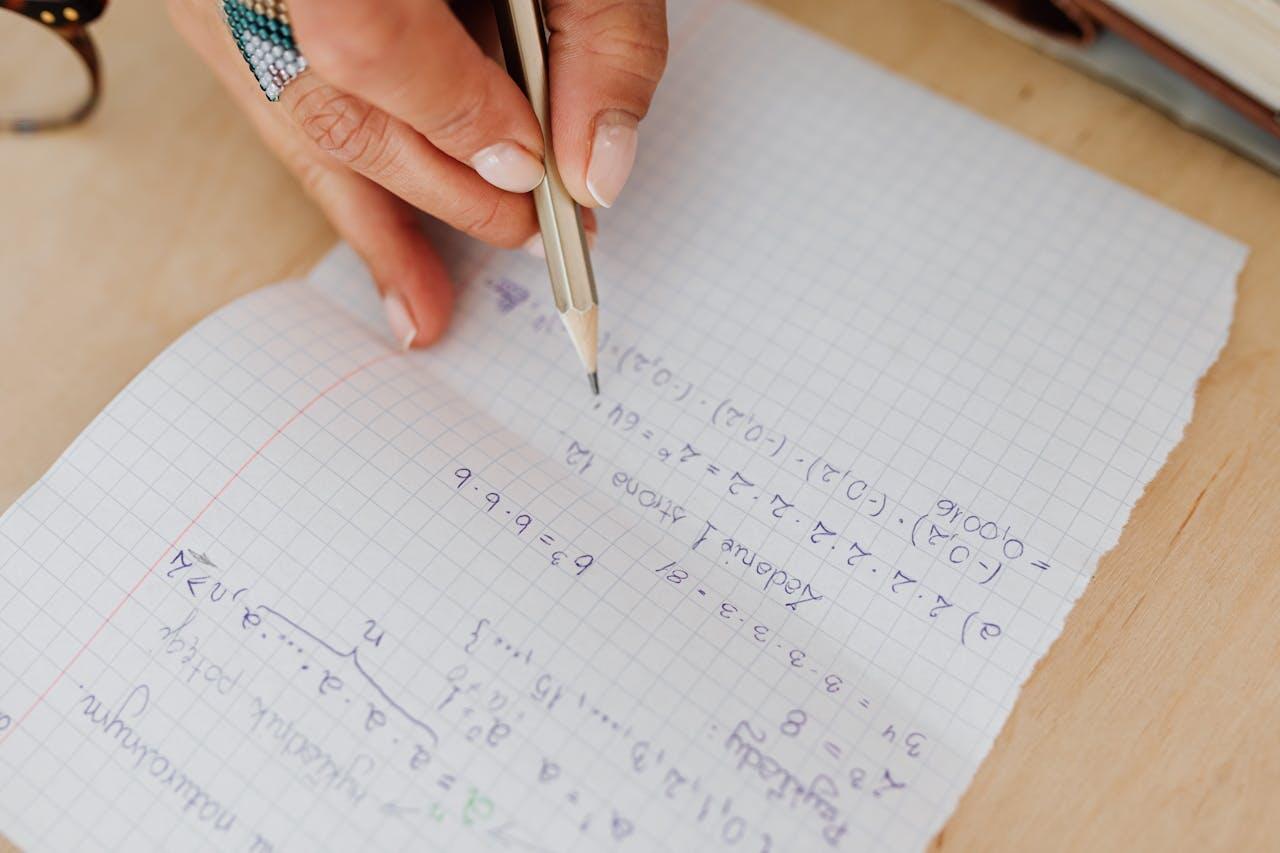 naturalnym.
→ wykładnik potęgi
aⁿ = a · a · a · ..... · a, n ≥ 2
n
a¹ = a
a⁰ = 1
0, 1, 2, 3, ..., 15, ...}
Przykłady:
2³ = 8
3⁴ = 3 · 3 · 3 · 3 = 81
b³ = b · b · b
Zadanie 1 strona 12.
a) 2 · 2 · 2 · 2 · 2 · 2 = 2⁶ = 64
(-0,2) · (-0,2) · (-0,2) · (-0,2)
= 0,0016